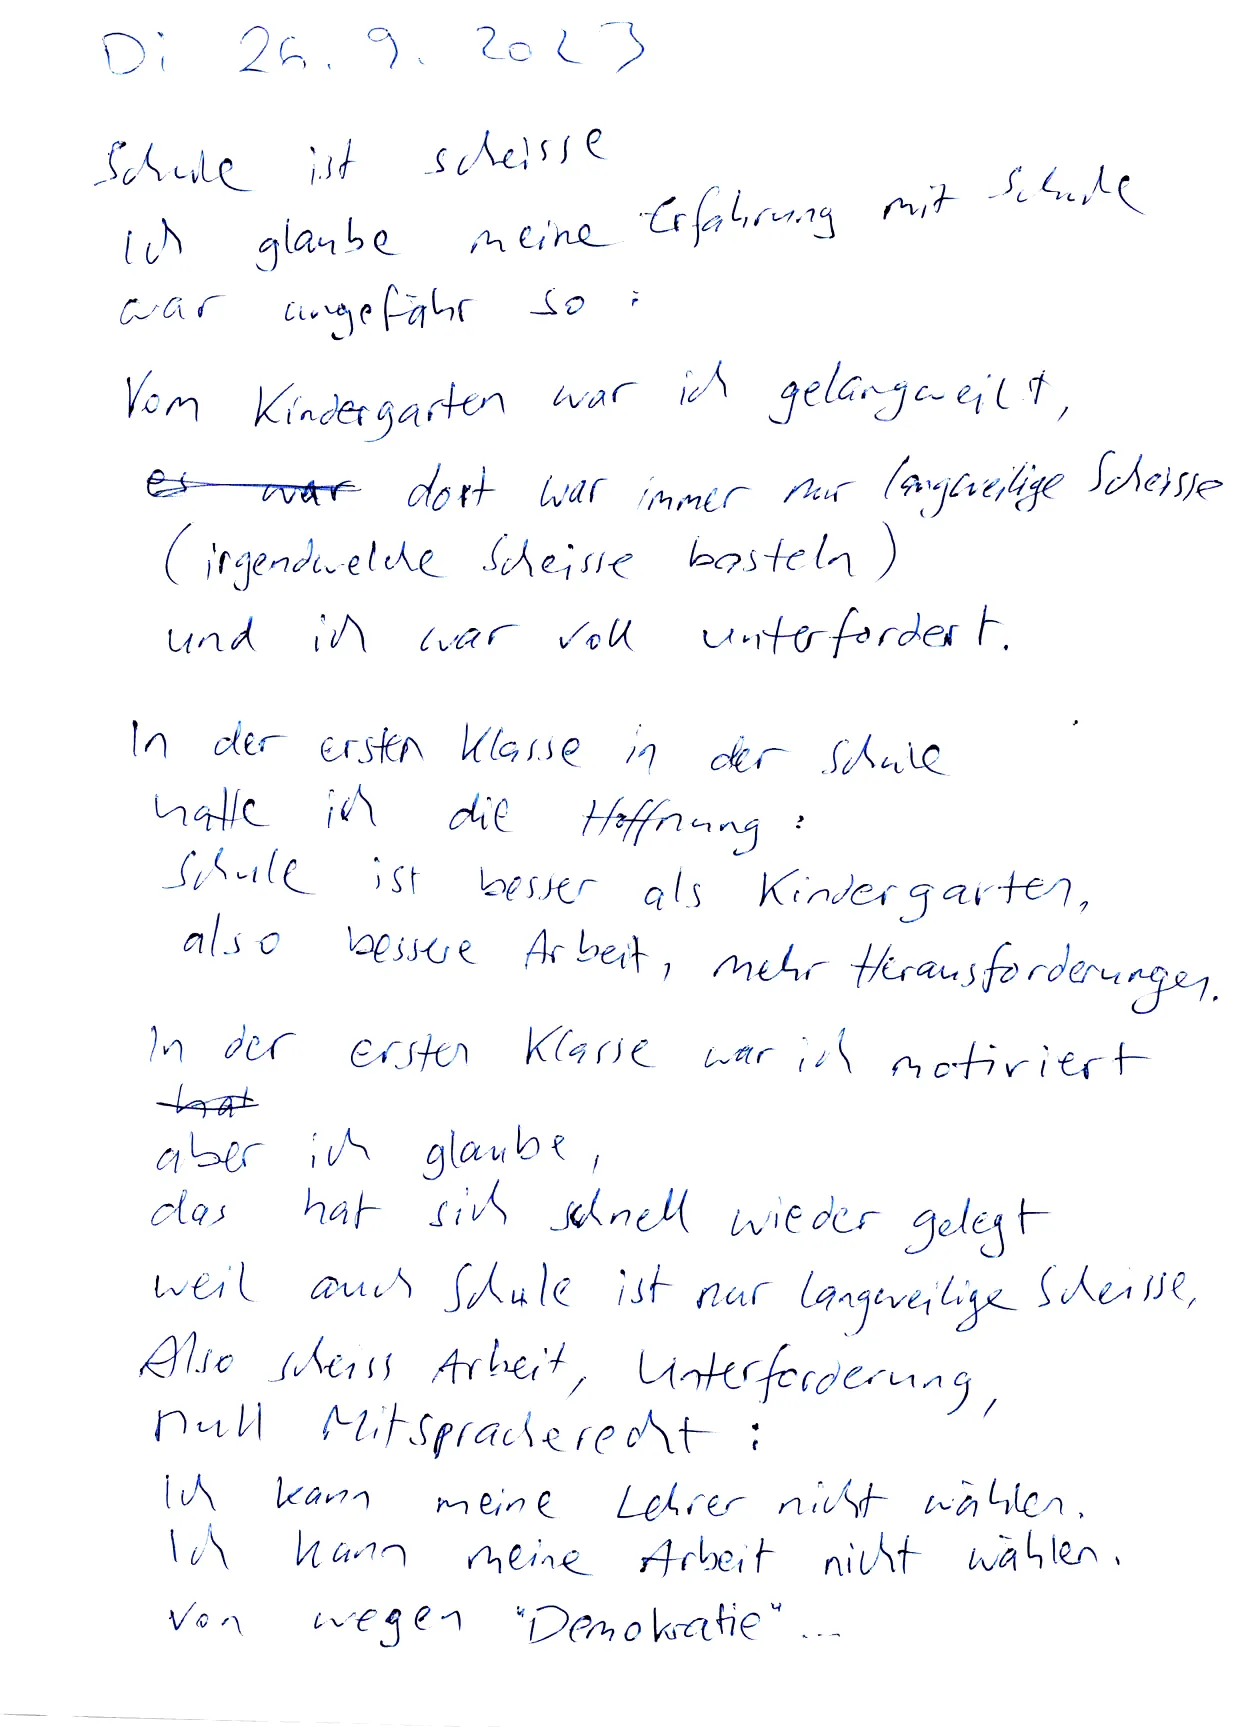 Di 26. 9. 2023
Schule ist scheisse
Ich glaube meine Erfahrung mit Schule
war ungefähr so:
Vom Kindergarten war ich gelangweilt,
es war dort war immer nur langweilige Scheisse
(irgendwelche Scheisse basteln)
und ich war voll unterfordert.
In der ersten Klasse in der Schule
hatte ich die Hoffnung:
Schule ist besser als Kindergarten,
also bessere Arbeit, mehr Herausforderungen.
In der ersten Klasse war ich motiviert
hat
aber ich glaube,
das hat sich schnell wieder gelegt
weil auch Schule ist nur langweilige Scheisse,
Also scheiss Arbeit, Unterforderung,
null Mitspracherecht:
Ich kann meine Lehrer nicht wählen.
Ich kann meine Arbeit nicht wählen.
von wegen "Demokratie"...